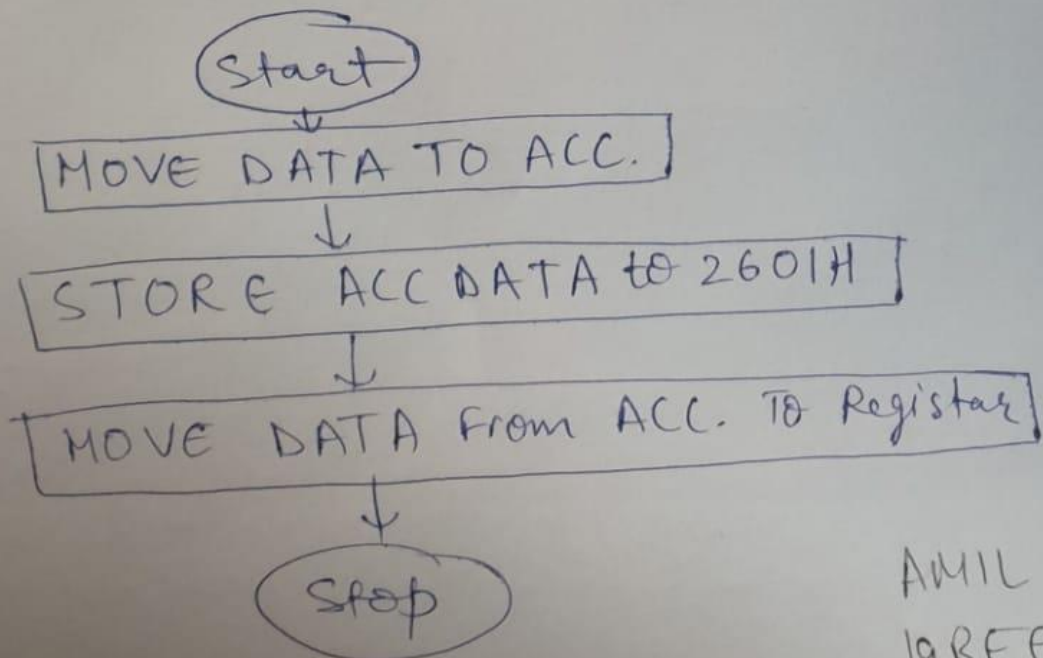 Start
MOVE DATA TO ACC.
STORE ACC DATA to 2601H
MOVE DATA From ACC. To Registar
Stop
AMIL